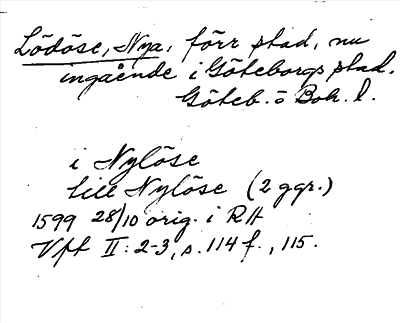 Lödöse, Nya, förr stad, nu
ingående i Göteborgs stad.
Göteb. o Boh. l.
i Nylöse
till Nylöse (2 ggr.)
1599 28/10 orig. i RA
Vft II: 2-3, s. 114 f., 115.